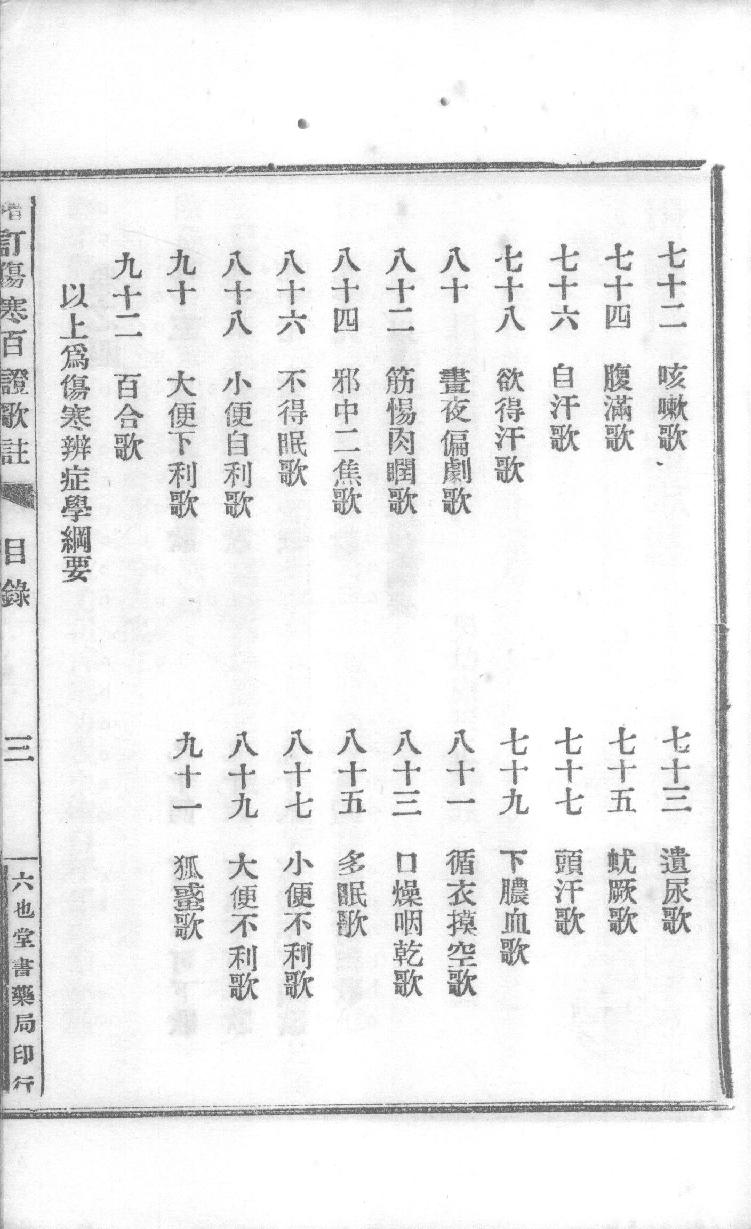 七十二　咳嗽歌　七十三　遺尿歌
七十四　腹滿歌　七十五　蚘厥歌
七十六　自汗歌　七十七　頭汗歌
七十八　欲得汗歌　七十九　下膿血歌
八十　晝夜偏劇歌　八十一　循衣摸空歌
八十二　筋惕肉瞤歌　八十三　口燥咽乾歌
八十四　邪中二焦歌　八十五　多眠歌
八十六　不得眠歌　八十七　小便不利歌
八十八　小便自利歌　八十九　大便不利歌
九十　大便下利歌　九十一　狐䘌歌
九十二　百合歌
以上爲傷寒辨症學綱要
增訂傷寒百證歌註　目錄　三　六也堂書藥局印行